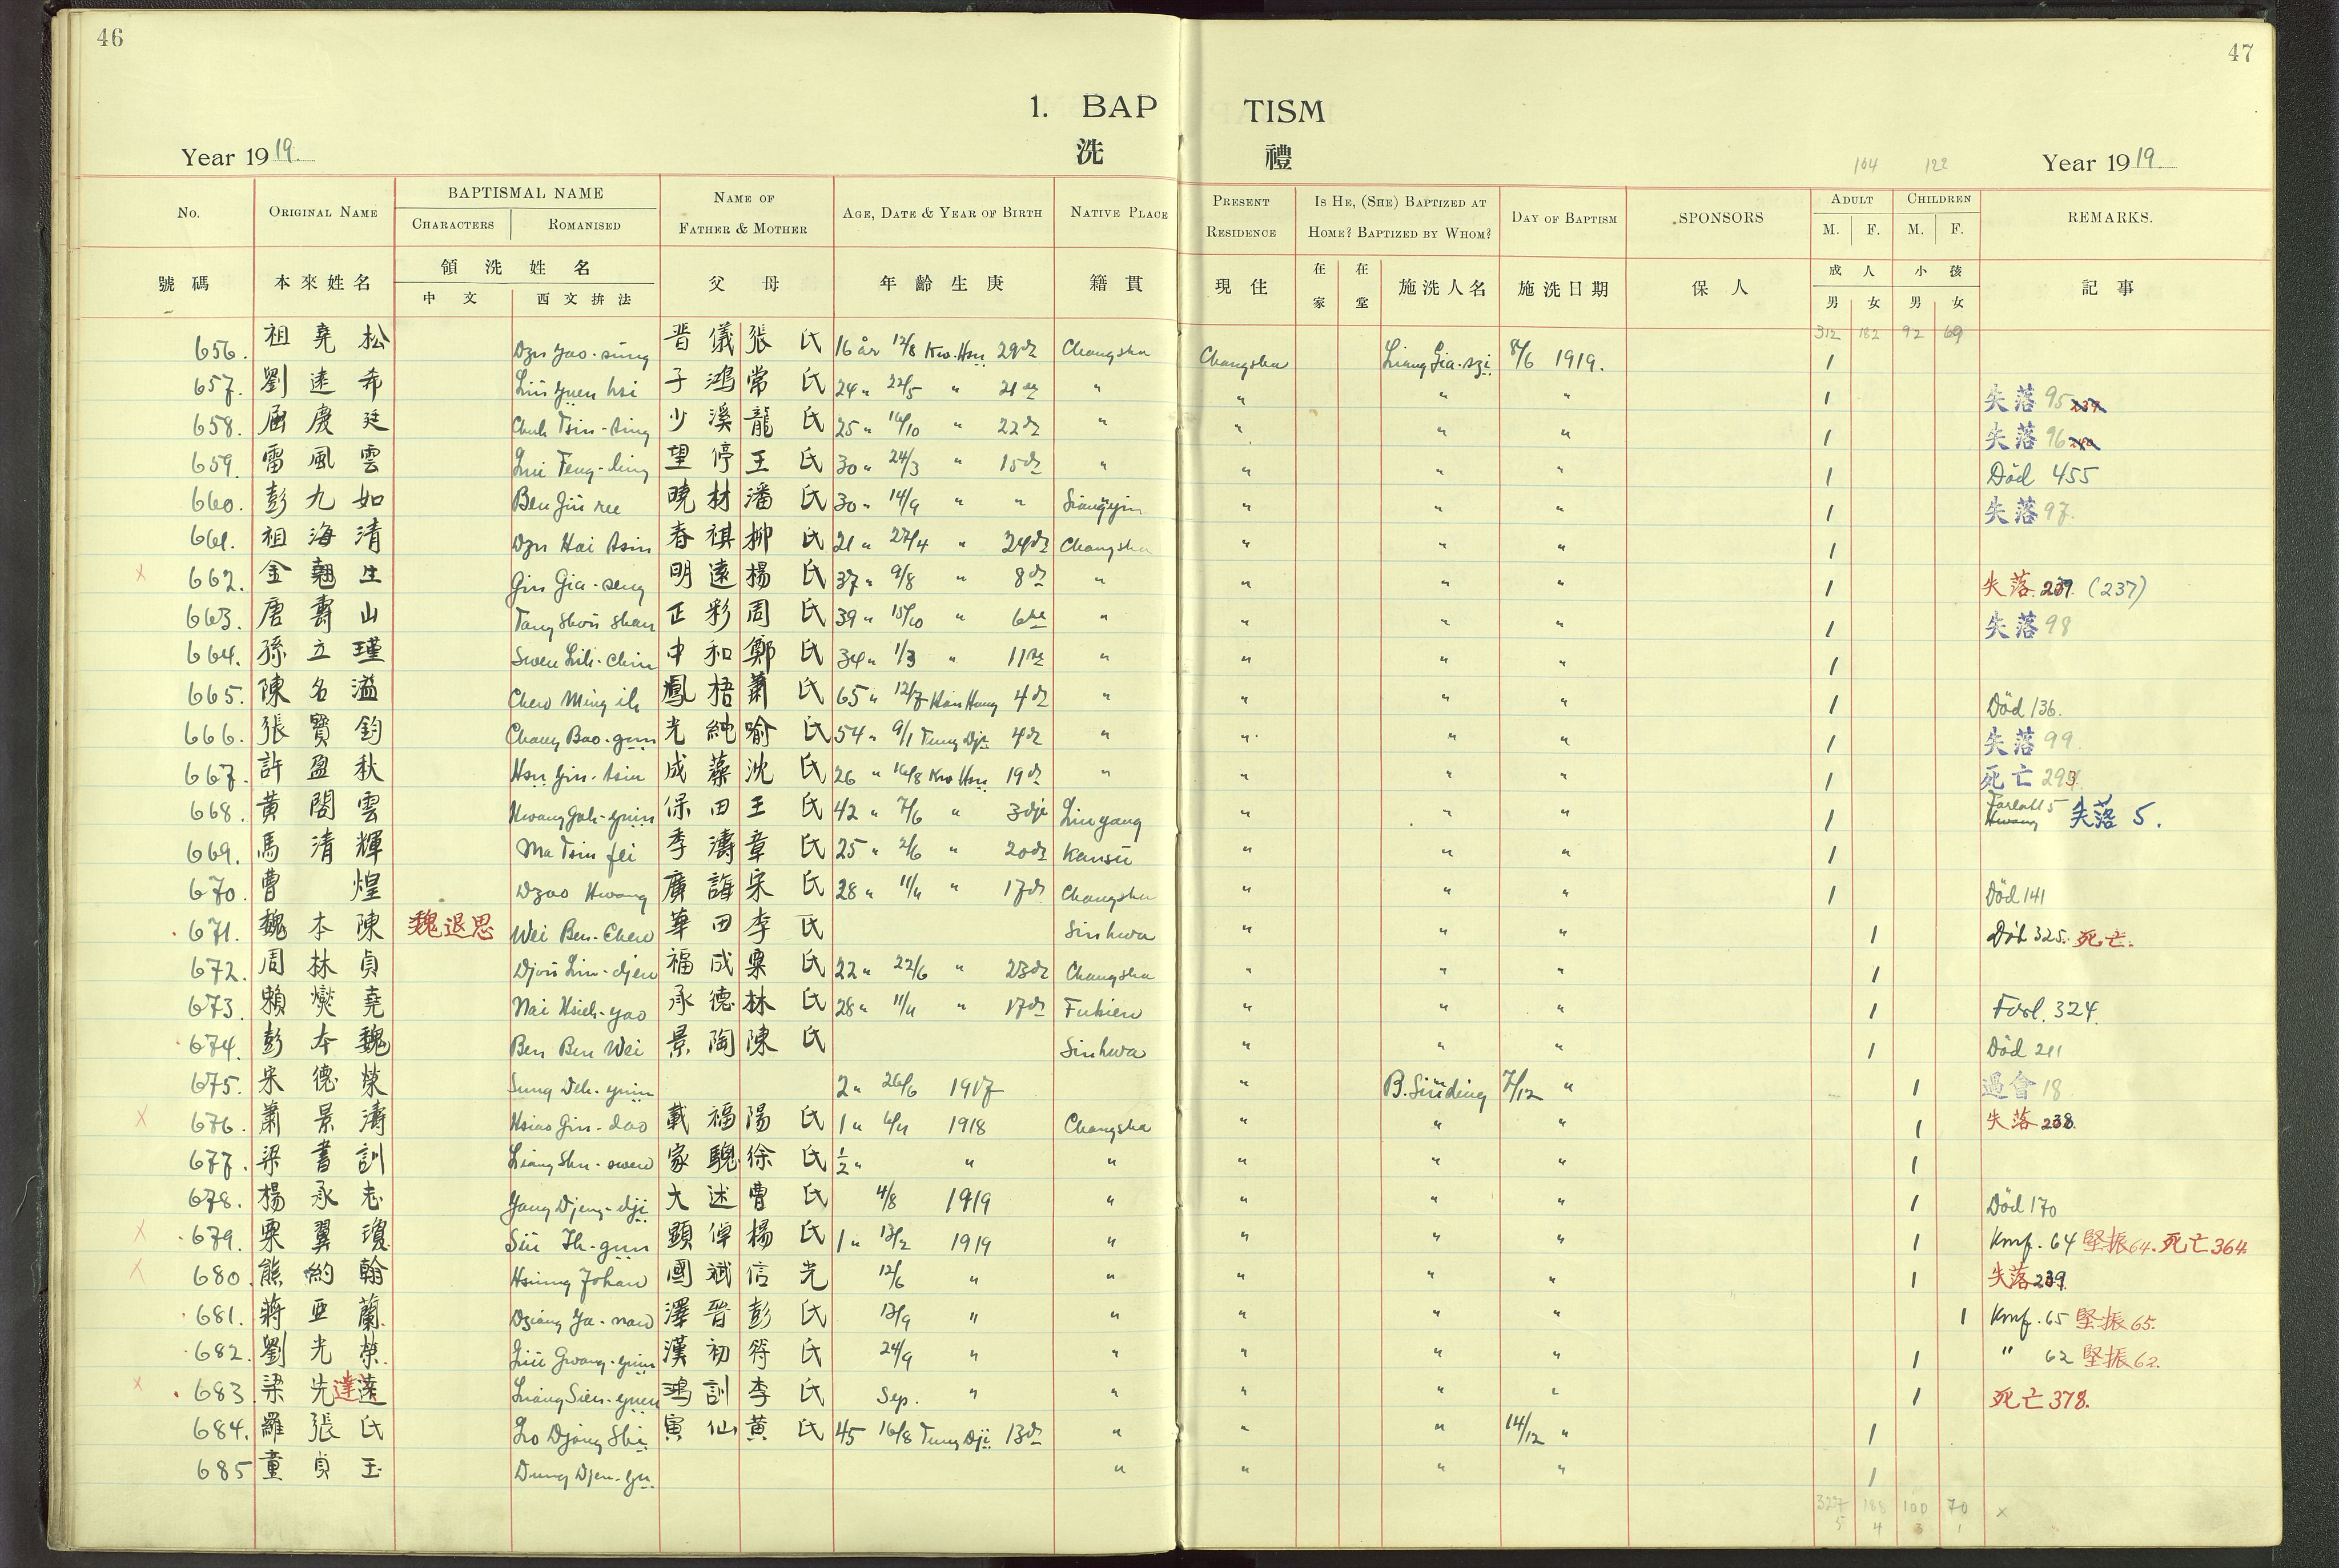 46
47
1. BAP TISM
洗 禮
Year 1919. 104 122 Year 1919.
No. ORIGINAL NAME BAPTISMAL NAME CHARACTERS ROMANISED NAME OF FATHER & MOTHER AGE, DATE & YEAR OF BIRTH NATIVE PLACE PRESENT RESIDENCE IS HE, (SHE) BAPTIZED AT HOME? BAPTIZED BY WHOM? DAY OF BAPTISM SPONSORS ADULT M. F. CHILDREN M. F. REMARKS.
號碼 本來姓名 領洗姓名 中文 西文拚法 父母 年齡生庚 籍貫 現住 在家 在堂 施洗人名 施洗日期 保人 成人 男 女 小孩 男 女 記事
312 182 92 69
656. 祖堯松 Dzu Yao-sung 晋儀 張氏 16 år 12/8 Kw. Hsü 29de Changsha Changsha Liang Gia-szi 8/6 1919. 1
657. 劉遠希 Liu Yuen hsi 子鴻 常氏 24 " 22/5 " 21de " " " " 1 失落 95
658. 屈慶廷 Chuh Tsin-ting 少溪 龍氏 25 " 16/10 " 22de " " " " 1 失落 96
659. 雷風雲 望停 王氏 30 " 24/3 " 15de " " " " 1 Död 455
660. 彭九如 Ben Jiu ree 曉材 潘氏 30 " 14/9 " " Siangyin " " " 1 失落 97.
661. 祖海清 Dzu Hai tsin 春祺 柳氏 21 " 27/4 " 24de Changsha " " " 1
x 662. 金翹生 Gin Gia-seng 明遠 楊氏 37 " 9/8 " 8de " " " " 1 失落. 239. (237)
663. 唐壽山 Tang Shou Shan 正彩 周氏 39 " 15/10 " 6te " " " " 1 失落 98
664. 孫立瑾 Swen Lih-Chin 中和 鄭氏 34 " 1/3 " 11te " " " " 1
665. 陳名溢 Chen Ming ih 鳳梧 蕭氏 65 " 12/7 Hien Hung 4de " " " " 1 Död 136.
666. 張寶鈞 Chang Bao-gun 光純 喻氏 54 " 9/1 Tung Dji 4de " " " " 1 失落 99.
667. 許盈秋 Hsu Yin-tsiu 成藻 沈氏 26 " 16/8 Kw. Hsü 19de " " " " 1 死亡 293.
668. 黃閣雲 Hwang Goh-yuin 保田 王氏 42 " 7/6 " 3dje Liuyang " " " 1 失落 5.
669. 馬清輝 Ma Tsin fei 季濤 章氏 25 " 2/6 " 20de Kansu " " " 1
670. 曹煌 Dzao Hwang 廣誨 宋氏 28 " 11/11 " 17de Changsha " " " 1 Död 141
671. 魏本陳 魏退思 Wei Ben-Chen 華田 李氏 Sinhwa " " " 1 Död 325. 死亡.
672. 周林貞 Djou Lin-djen 福成 粟氏 22 " 22/6 " 23de Changsha " " " 1
673. 賴燮堯 Nai Hsieh-yao 承德 林氏 28 " 11/11 " 17de Fukien " " " 1 Forl. 324.
674. 彭本魏 Ben Ben Wei 景陶 陳氏 Sinhwa " " " 1 Död 211
675. 宋德榮 Sung Deh-yuin 2 " 26/6 1917 " B. Sinding 7/12 " 1 過會 18
x 676. 蕭景濤 Hsiao Gin-dao 載福 陽氏 1 " 4/11 1918 Changsha " " " 1 失落 238.
677. 梁書訓 Liang Shu-swen 家驄 徐氏 ½ " " " " " " 1
678. 楊承志 Yang Djeng-dji 大述 曹氏 4/8 1919 " " " " 1 Död 170
x 679. 粟翼瓊 顯倬 楊氏 1 " 13/2 1919 " " " " 1 Kmf. 64 堅振 64. 死亡 364.
x 680. 熊約翰 Hsiung Johan 國斌 信光 12/6 " " " " " 1 失落 239.
681. 蔣亞蘭 Dziang Ya-nan 澤晉 彭氏 13/9 " " " " " 1 Kmf. 65 堅振 65.
682. 劉光榮 Liu Gwang-yuin 漢初 符氏 24/9 " " " " " 1 " 62 堅振 62.
x 683. 梁先達 Liang Sien-yuen 鴻訓 李氏 Sep. " " " " " 1 死亡 378.
684. 羅張氏 Lo Djang Shi 寅仙 黃氏 45 16/8 Tung Dji 13de " " " 14/12 " 1
685 童貞玉 Dung Djen-yu " " " " 1
327 188 100 70 x
5 4 3 1